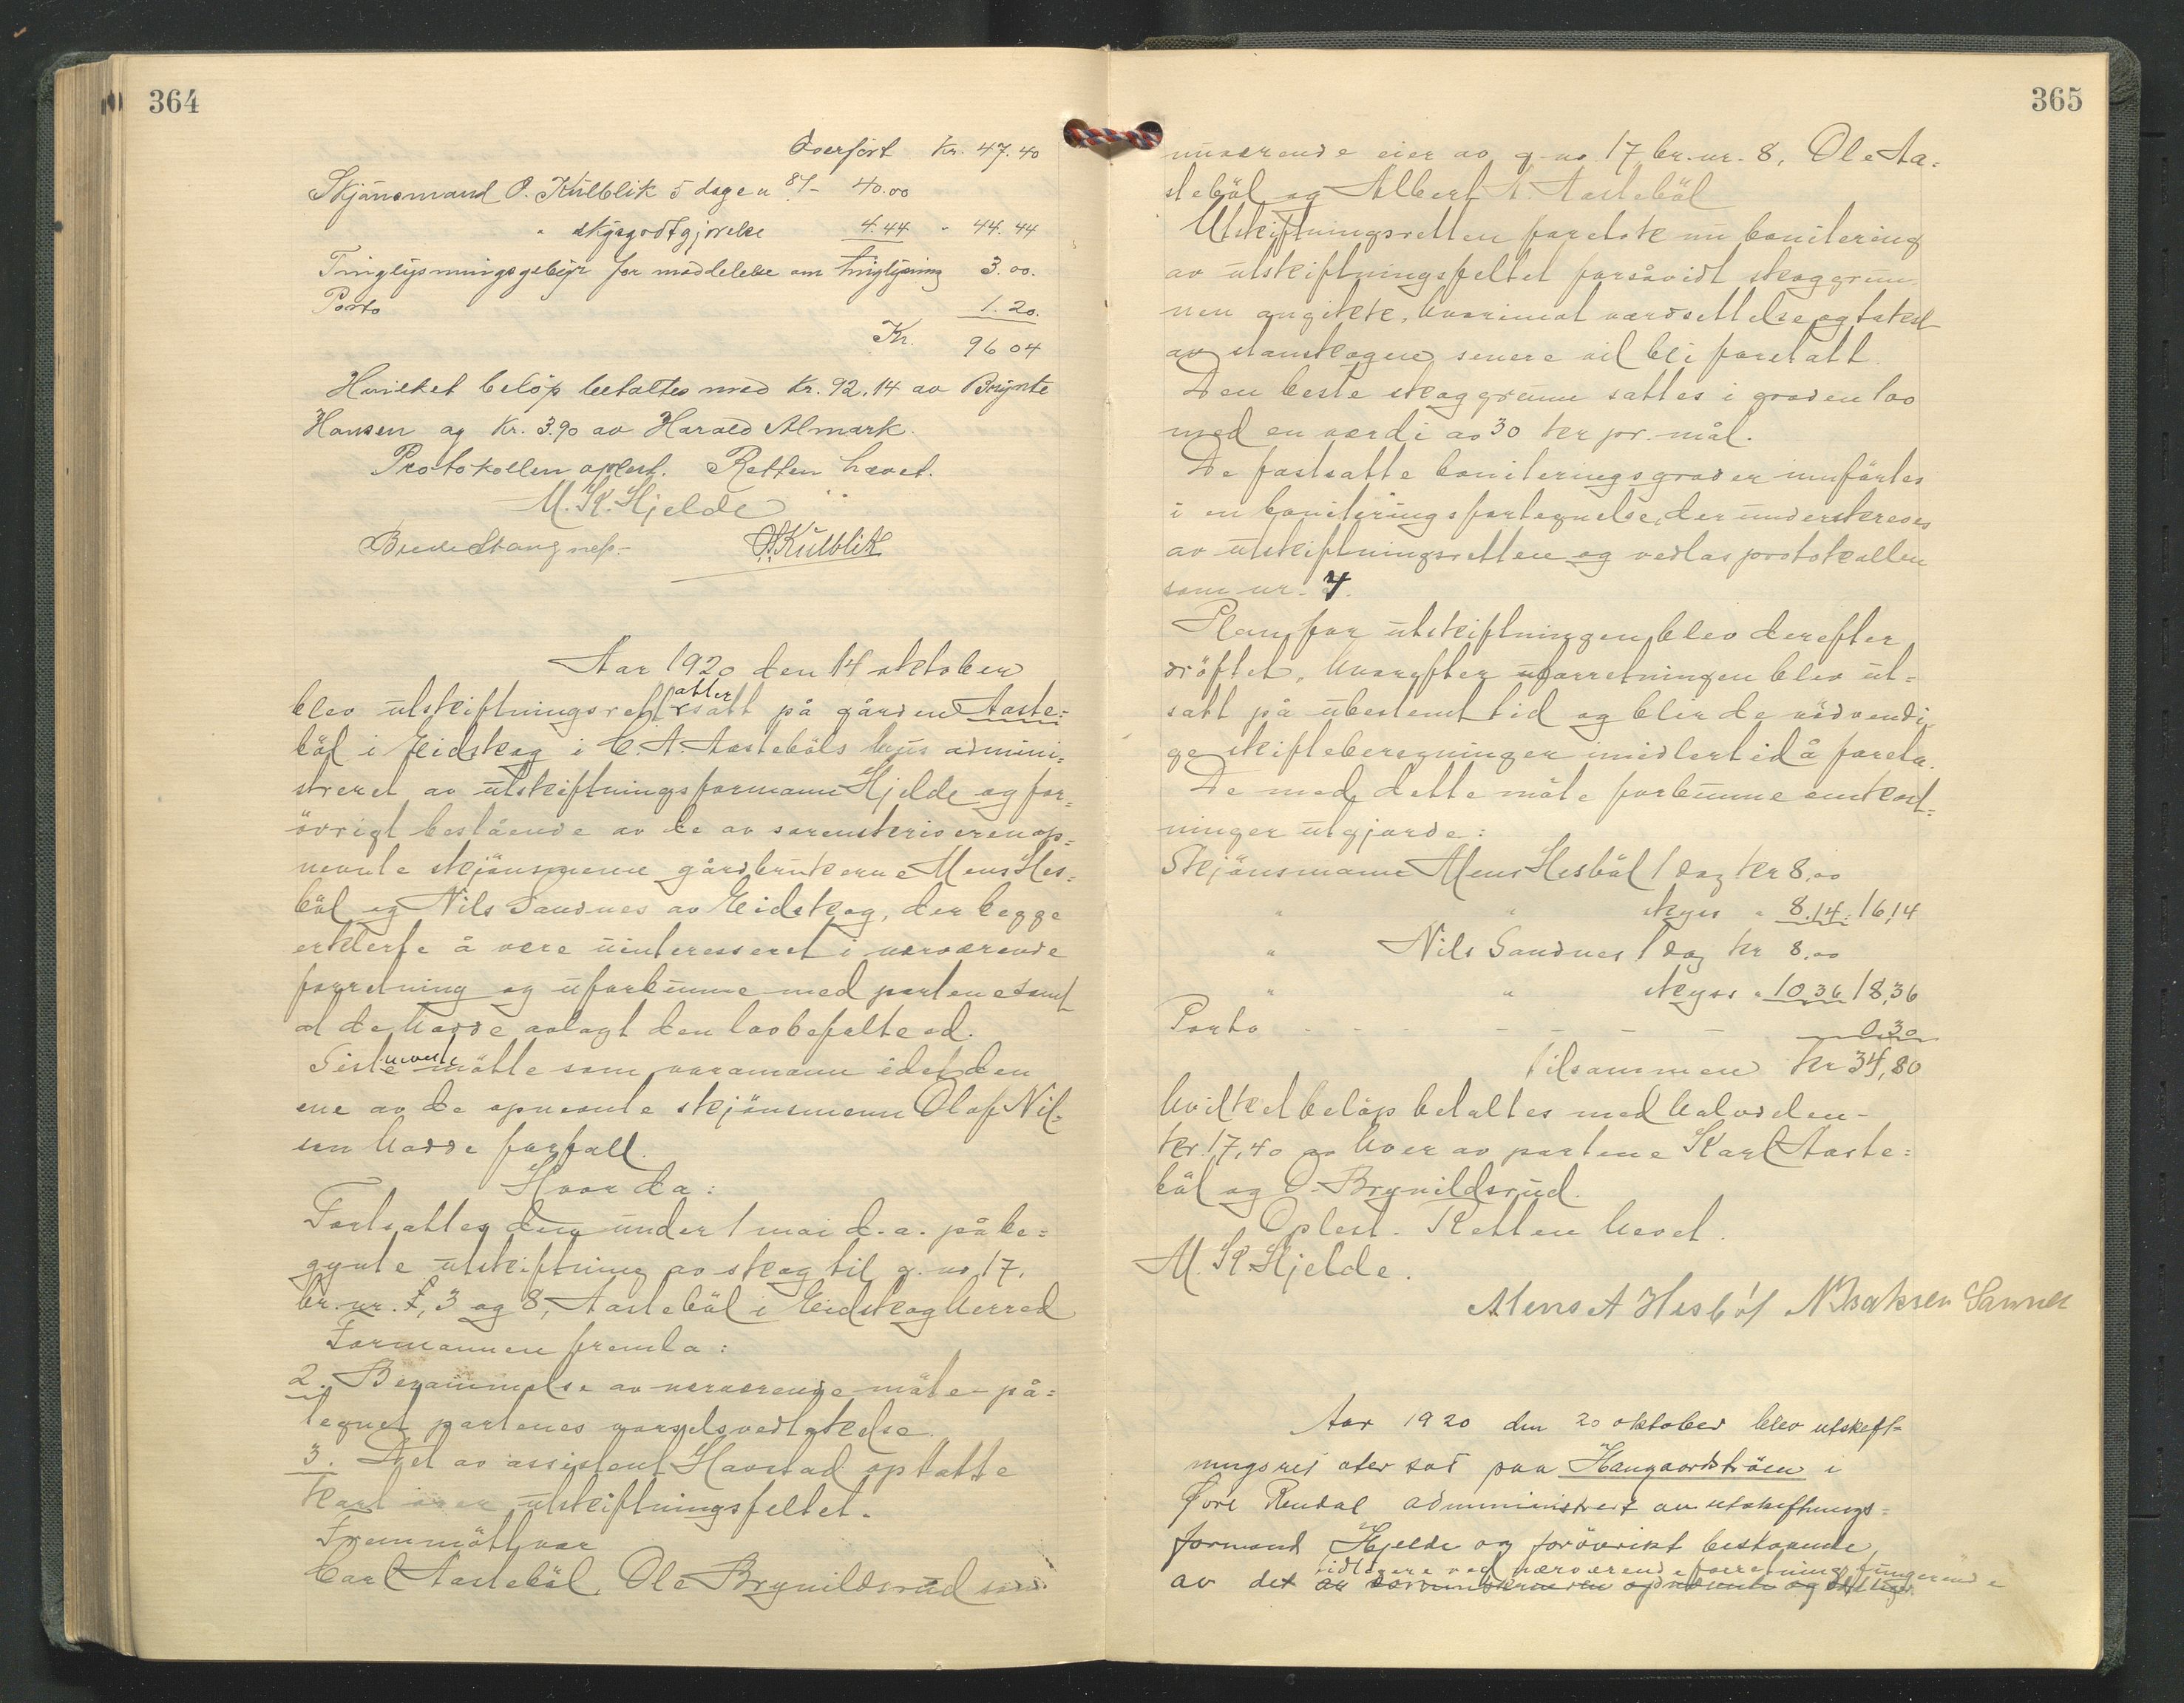 364
Overført Kr. 47.40
Skjønsmand O. Kulblik 5 dage a 8/- 40.00
" skysgodtgjørelse 4.44 - 44.44
Tinglysningsgebyr for meddelelse om tinglysning 3.00.
Porto 1.20.
Kr. 96 04
Hvilket beløp betaltes med Kr. 92.14 av Brynte
Hansen og Kr. 3.90 av Harald Almark.
Protokollen oplest. Retten hævet.
M. K. Hjelde
O. Kulblik
Aar 1920 den 14 oktober
blev utskiftningsrett atter satt på gården Aaste=
böl i Eidskog i C. A. Aasteböls hus admini=
streret av utskiftningsformann Hjelde og for=
övrigt bestående av de av sorenskriveren op=
nevnte skjönsmenn gårdbrukerne Mens Hes=
böl og Nils Sandnes av Eidskog, der begge
erklerte å vere uinteresseret i nerværende
forretning og uforbunne med partene samt
at de hadde avlagt den lovbefalte ed.
Sistnevnte mötte som varamann idet den
ene av de opnevnte skjönsmenn Olaf Nil=
sen hadde forfall.
Hvor da:
Fortsattes den under 1 mai d. a. påbe=
gynte utskiftning av skog til g. no 17,
br. nr. 1, 3 og 8, Aasteböl i Eidskog herred
Formannen fremla:
2. Berammelse av nerværende möte på=
tegnet partenes varselsvedtakelse.
3. Det av assistent Havstad optatte
kart over utskiftningsfeltet.
Fremmött var
Carl Aasteböl, Ole Brynildsrud som
365
nuværende eier av g. no. 17 br. nr. 8, Ole Aa=
steböl og Albert A. Aasteböl
Utskiftningsretten foretok nu bonitering
av utskiftningsfeltet forsåvidt skoggrun=
nen angikk, hvorimot værdsettelse og takst
av stamskogen senere vil bli foretatt.
Den beste skoggrunn sattes i graden 100
med en værdi av 30 kr pr. mål.
De fastsatte boniteringsgrader innförtes
i en boniteringsfortegnelse, der underskreves
av utskiftningsretten og vedlas protokollen
som nr. 4.
Plan for utskiftningen blev derefter
dröftet, hvorefter forretningen blev ut=
satt på ubestemt tid og blir de nödvendi=
ge skifteberegninger imidlertid å foreta.
De med dette möte forbunne omkost=
ninger utgjorde:
Skjönsmann Mens Hesböl 1 dag kr 8.00
" " skyss " 8.14 16,14
" Nils Sandnes 1 dag kr 8.00
" " skyss " 10.36 18,36
Porto - - - - - - - 0.30
Tilsammen kr 34,80
Hvilket belöp betaltes med halvdelen -
kr. 17,40 av hver av partene Karl Aaste=
böl og O. Brynildsrud.
Oplest. Retten hevet.
M. K. Hjelde.
Mens A Hesböl N Isaksen Sannes
Aar 1920 den 20 oktober blev utskift-
ningsret ater sat paa Haugaardströen i
Øvre Rendal administrert av utskiftnings=
formand Hjelde og forövrikt bestaaende
tidligere ved nærværende forretning fungerende
av det av sorenskriveren opnævnte og